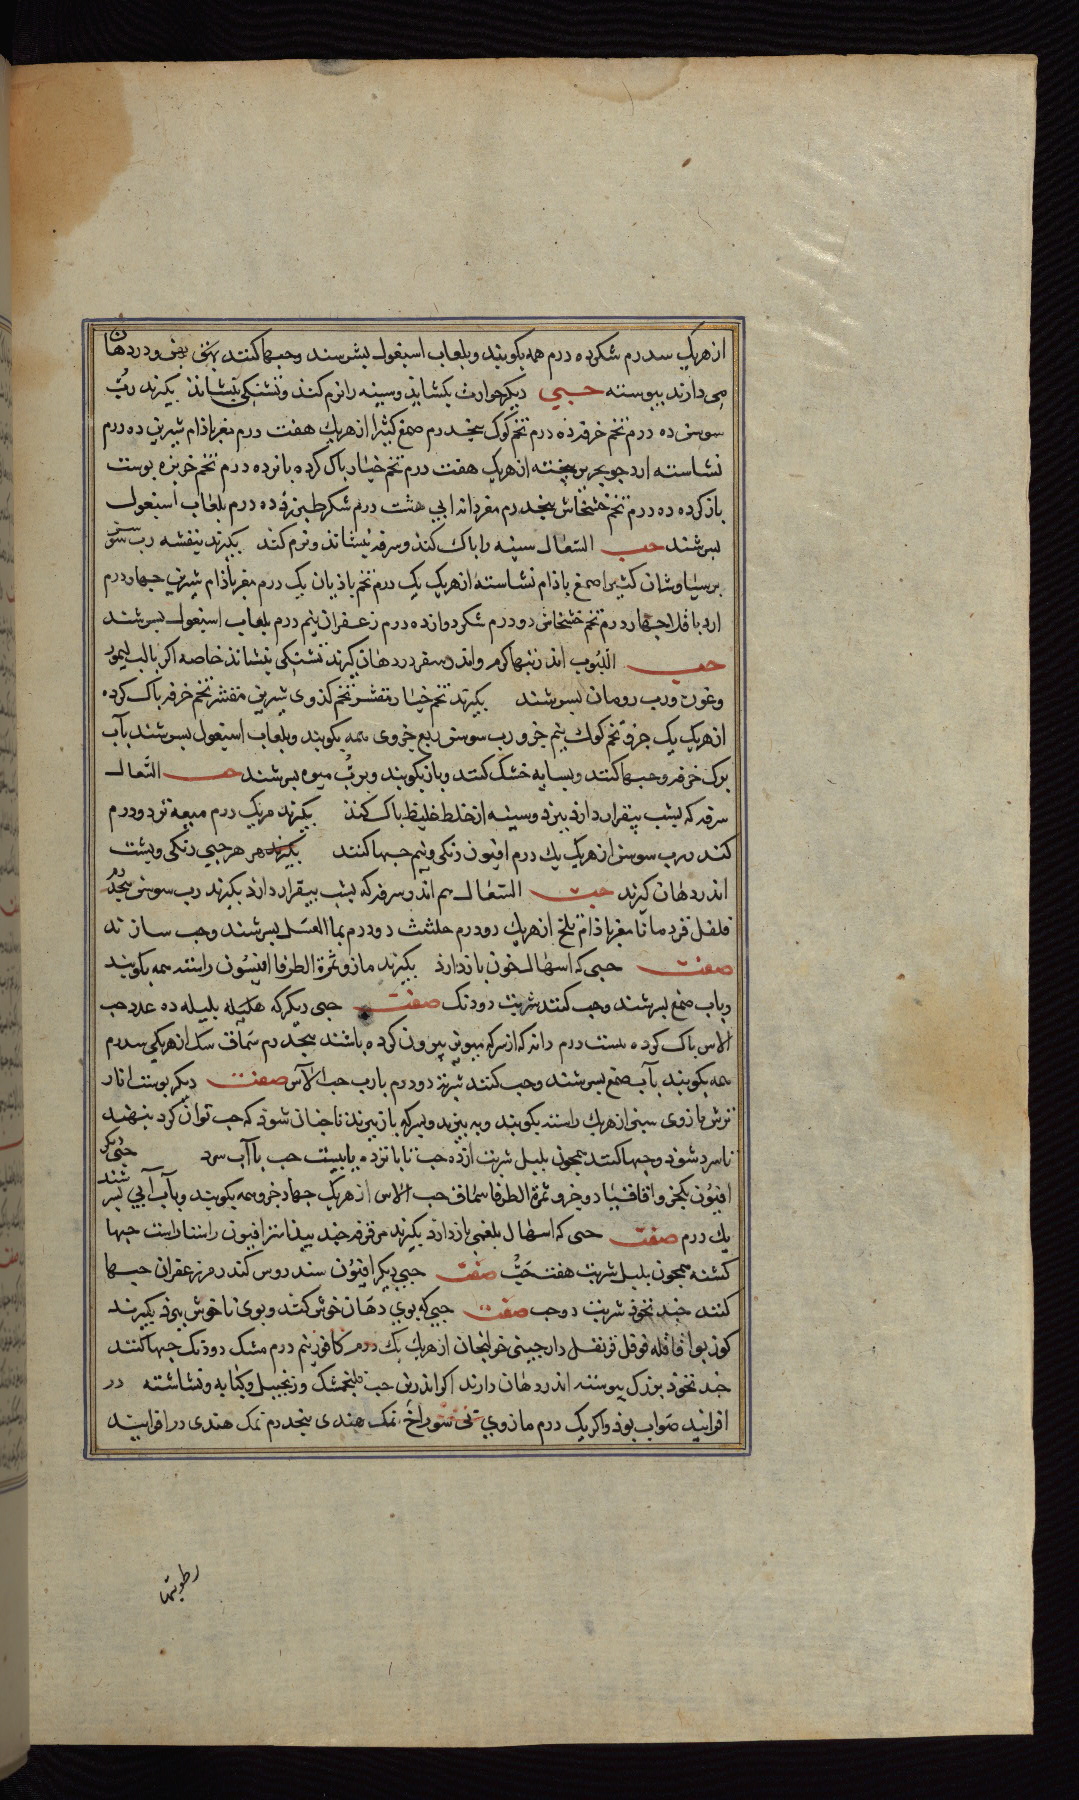 از هریک سه درم شکر ده درم همه بکوبند و بلعاب اسبغول بسرشند و حبها کنند و در دهان
می دارند پیوسته حبی دیکر حرارت بکشاند و سینه را نرم کند و تشنکی بنشاند بکیرند ربّ
سوس ده درم تخم خرفه ده درم تخم کوک پنجدرم صمغ کثیرا از هریک هفت درم مغز باذام شیرین ده درم
نشاسته ارد جو بحریر بیخته از هریک هفت درم تخم خیار باک کرده بانزده درم تخم خربزه بوست
باز کرده ده درم تخم خشخاش پنجدرم مغز دانه ابی هشت درم شکر طبرزد ده درم بلعاب اسبغول
بسرشند حب السّعال سینه را باک کند و سرفه بنشاند و نرم کند بکیرند بنفشه رب سوس
برسیاوشان کثیرا صمغ باذام نشاسته از هریک یک درم تخم باذیان یک درم مغز باذام شیرین جهاردرم
ارد باقلا جهاردرم تخم خشخاش دو درم شکر دوازده درم زعفران نیم درم بلعاب اسبغول بسرشند
حب اللبوب اندر تبهاء کرم و اندر سفر در دهان کیرند تشنکی بنشاند خاصه اکر بالب لیمو
و غوره و رب رومان بسرشند بکیرند تخم خیار مقشر تخم کذوی شیرین مقشر تخم خرفه باک کرده
از هریک یک جزو تخم کوک نیم جزو رب سوس ربع جزوی همه بکوبند و بلعاب اسبغول بسرشند بآب
برک خرفه و حبها کنند و بسایه خشک کنند و باز بکوبند و بربّ میوه بسرشند حب السّعال
سرفه که بشب بیقرار دارد ببرد و سینه از خلط غلیظ باک کند بکیرند مر یک درم میعه تر دو درم
کندر رب سوس از هریک یک درم افیون دنکی و نیم حبها کنند هر حبی دنکی و بشب
اندر دهان کیرند حب السّعال هم اندر سرفه که بشب بیقرار دارد بکیرند رب سوس پنجدرم
فلفل قردمانا مغز باذام تلخ از هریک دو درم حلتیت دو درم بماء العسل بسرشند و حب سازند
صفت حبی که اسهال خون باز دارد بکیرند مازو ثمرة الطرفا افیون راستا همه بکوبند
و باب صمغ بسرشند و حب کنند شربت دو دنک صفت حبی دیکر که هلیله بلیله ده عدد حب
الاس باک کرده بیست درم دانه که از سرکه بیرون کرده باشند پنجدرم سمّاق سک از هریکی سه درم
همه بکوبند بآب صمغ بسرشند و حب کنند شربت دو درم بارب حب الآس صفت دیکر بوست انار
ترش مازوی سبز از هریک راستا بکوبند و به بیزند و بسرکه باز ببزند تا جنان شوذ که حب توان کرد بنهند
تا سرد شوذ و حبها کنند همجون بلبل شربت از ده حب تا بانزده یا بیست حب با آب سرد حبی دیکر
افیون یکجزو اقاقیا دو جزو ثمرة الطرفا سماق حب الاس از هریک جهار جزو همه بکوبند و بآب آبی بسرشند
یک درم صفت حبی که اسهال بلغمی باز دارد بکیرند افیون راستا راست حبها
کنند همجون بلبل شربت هفت حبّ صفت حبی دیکر افیون سندروس کندر مر زعفران حبها
کنند جند نخوذ شربت دو حب صفت حبی که بوی دهان خوش کند و بوی ناخوش ببرذ بکیرند
کوز بوا قاقله فوفل قرنفل دارجینی خولنجان از هریک یک درم کافور نیم درم مشک دو دنک حبها کنند
جند نخوذ بزرک پیوسته اندر دهان دارند اکر اندرین حب فلنجمشک و زنجبیل و کبابه و نشاشته در
افزایند صواب بوذ و اکر یک درم مازوی بی سوراخ نمک هندی پنجدرم نمک هندی در افزایند
رطوبتها